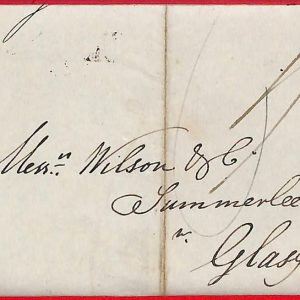 Messrs. Wilson & Co
Summerlee
nr.
Glasg